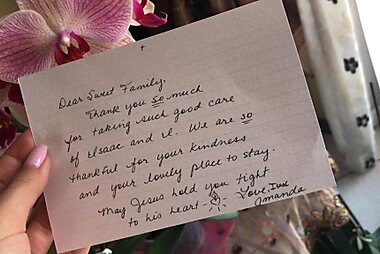 Dear Sweet Family,
Thank you so much
for taking such good care
of Isaac and I. We are so
thankful for your kindness
and your lovely place to stay.
May Jesus hold you tight
to his heart - Love,
Amanda